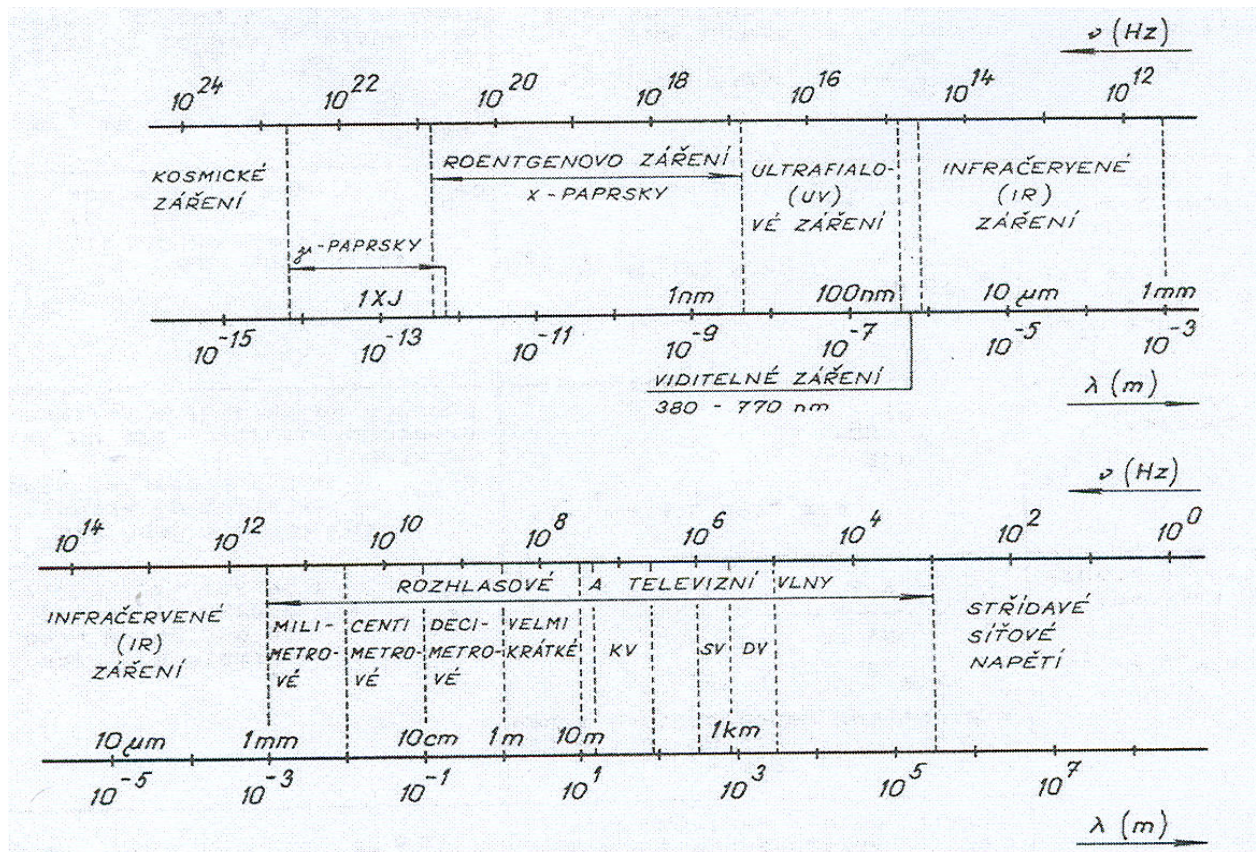 ν (Hz)
10^24 10^22 10^20 10^18 10^16 10^14 10^12
KOSMICKÉ ZÁŘENÍ
γ-PAPRSKY
ROENTGENOVO ZÁŘENÍ
X-PAPRSKY
ULTRAFIALO-
(UV)
VÉ ZÁŘENÍ
INFRAČERVENÉ
(IR)
ZÁŘENÍ
1XJ 1nm 100nm 10 μm 1mm
10^-15 10^-13 10^-11 10^-9 10^-7 10^-5 10^-3
VIDITELNÉ ZÁŘENÍ
380 - 770 nm
λ (m)
ν (Hz)
10^14 10^12 10^10 10^8 10^6 10^4 10^2 10^0
ROZHLASOVÉ A TELEVIZNÍ VLNY
INFRAČERVENÉ
(IR)
ZÁŘENÍ
MILI-
METRO-
VÉ
CENTI
METRO-
VÉ
DECI-
METRO-
VÉ
VELMI
KRÁTKÉ
KV
SV
DV
STŘÍDAVÉ
SÍŤOVÉ
NAPĚTÍ
10 μm 1mm 10cm 1m 10m 1km
10^-5 10^-3 10^-1 10^1 10^3 10^5 10^7
λ (m)